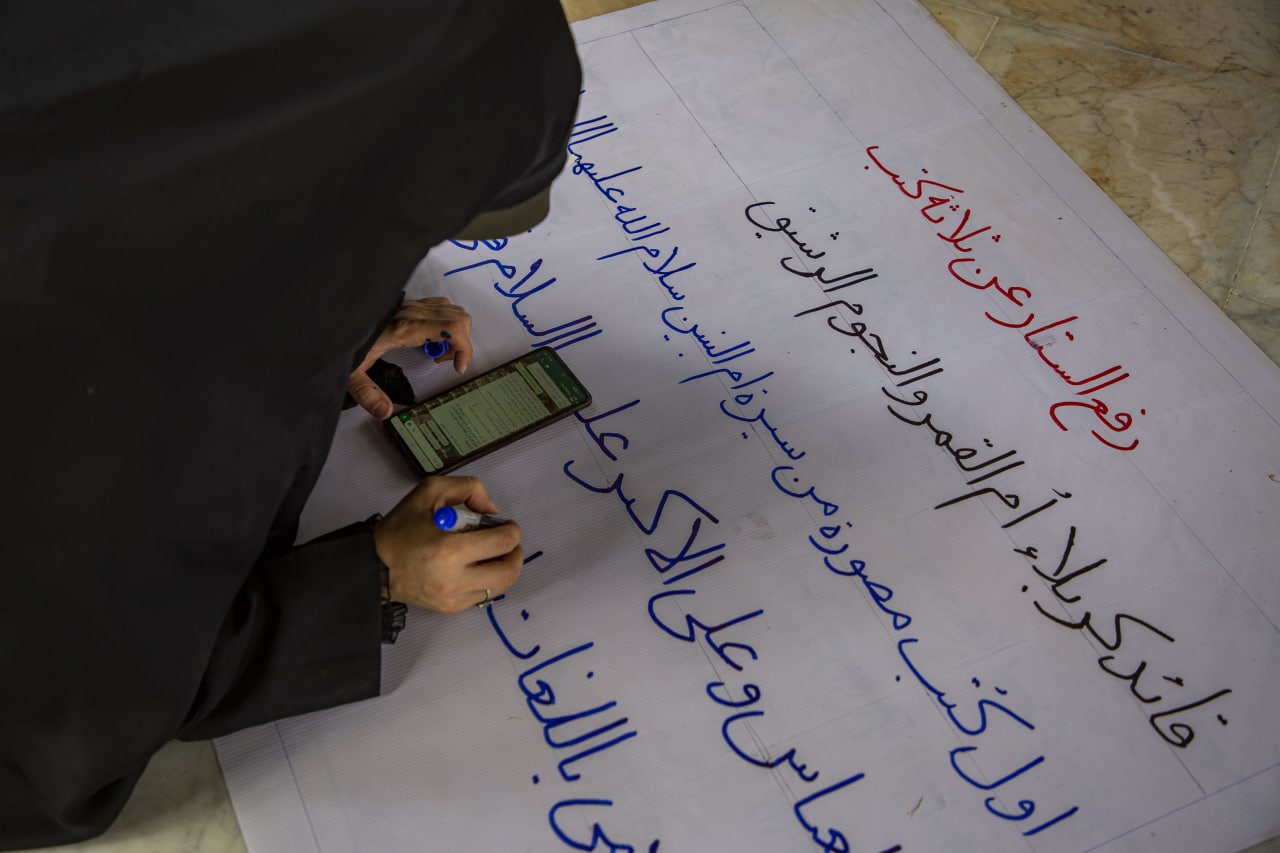 رفع الستار عن ثلاثة كتب
قائد كربلاء أُم القمر والنجوم الرشيق
اول كتب مصورة من سيرة ام البنين سلام الله عليها
وعلى الاكبر السلام
باللغات